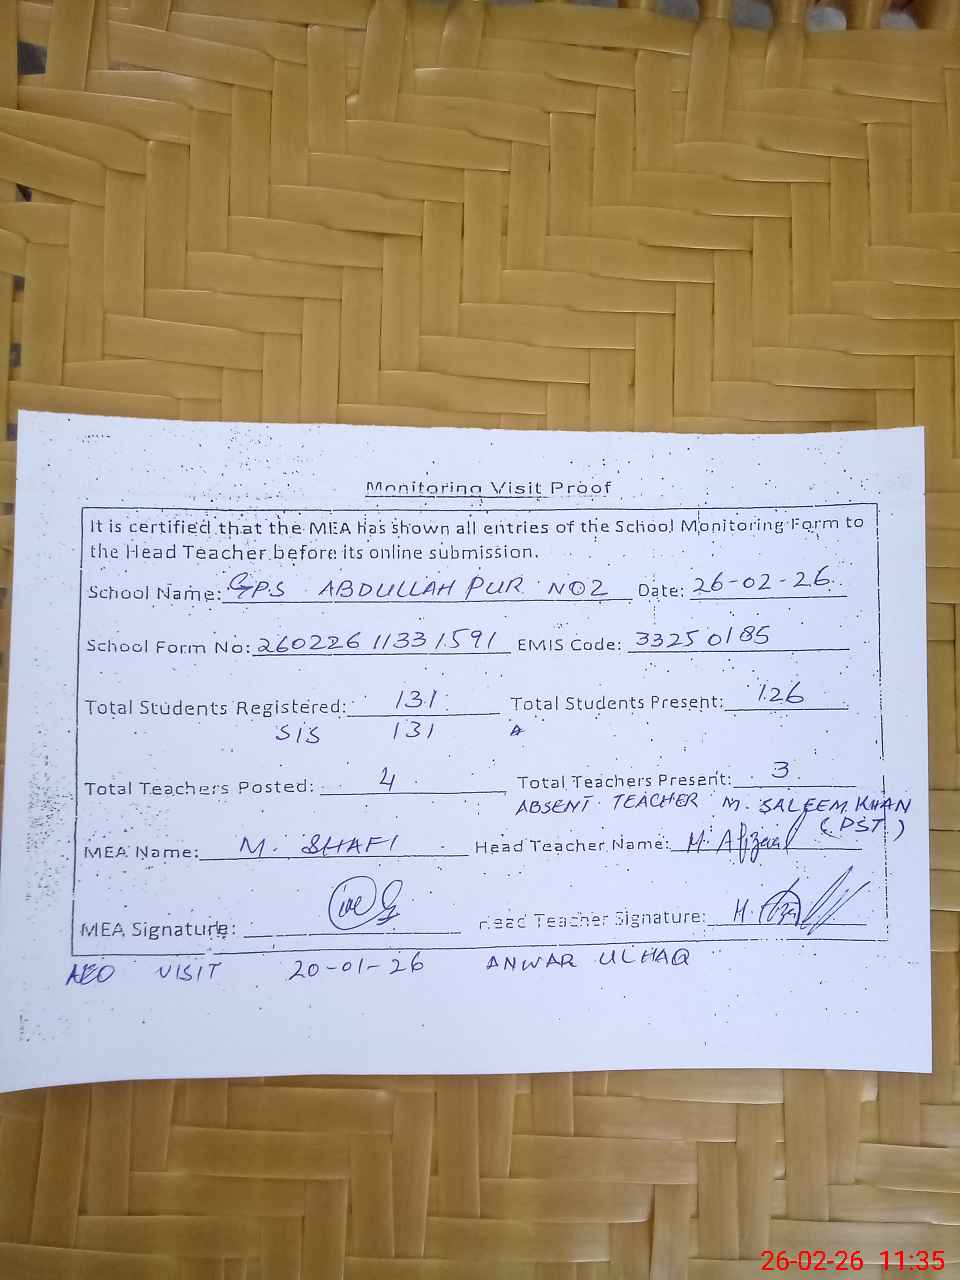 Monitoring Visit Proof
It is certified that the MEA has shown all entries of the School Monitoring Form to
the Head Teacher before its online submission.
School Name: GPS ABDULLAH PUR NO2 Date: 26-02-26
School Form No: 26022611331591 EMIS Code: 33250185
Total Students Registered: 131 Total Students Present: 126
SIS 131
Total Teachers Posted: 4 Total Teachers Present: 3
ABSENT TEACHER M. SALEEM KHAN
(PST)
MEA Name: M. SHAFI Head Teacher Name: M. Afzaal
MEA Signature: Head Teacher Signature:
AEO VISIT 20-01-26 ANWAR UL HAQ
26-02-26 11:35